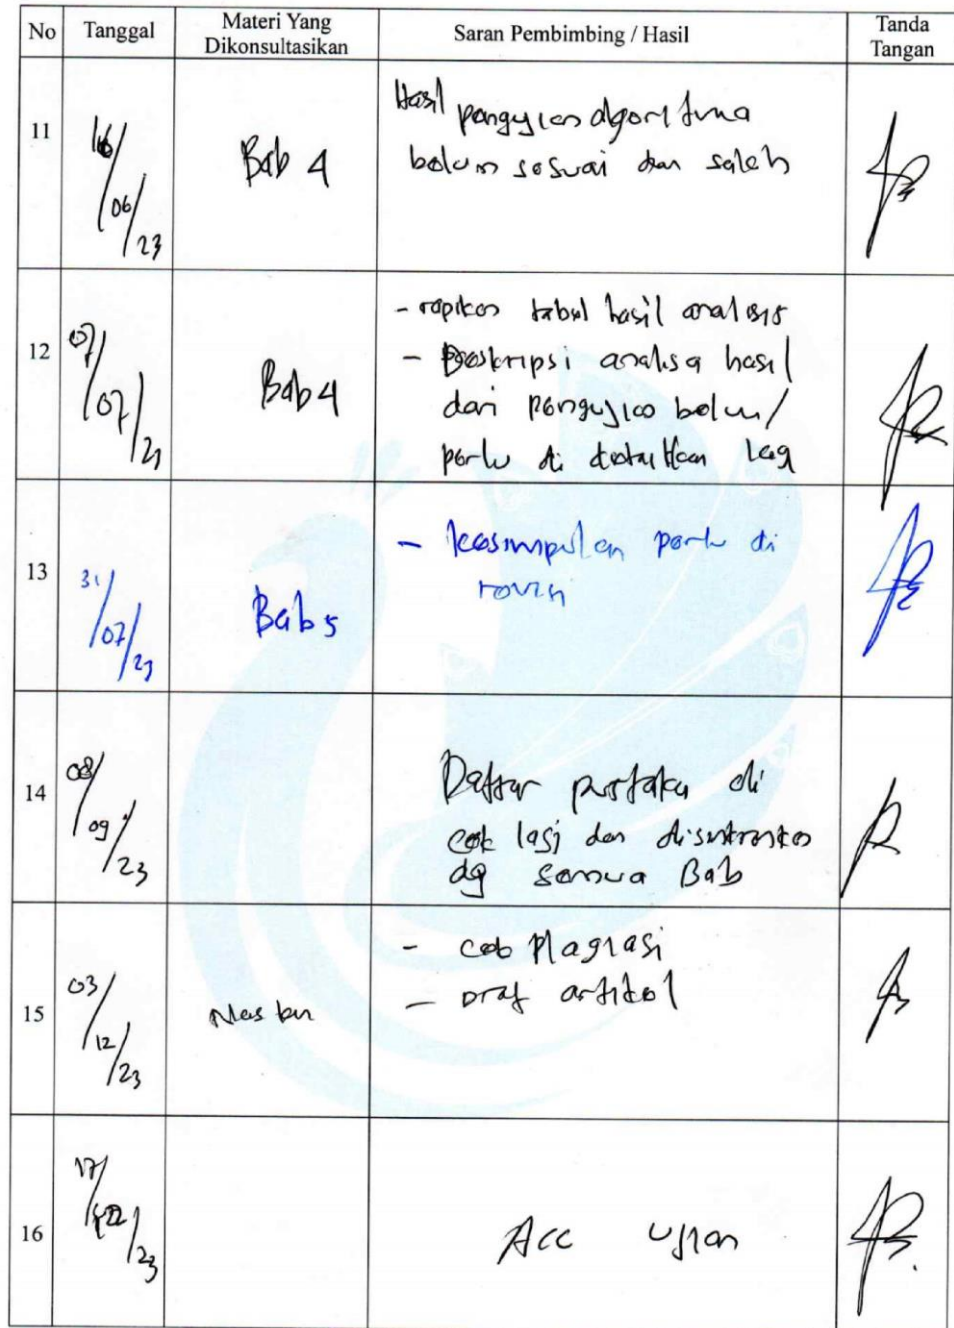 No Tanggal Materi Yang Dikonsultasikan Saran Pembimbing / Hasil Tanda Tangan
11 16/06/23 Bab 4 Hasil pengujian algoritma
belum sesuai dan salah
12 07/07/23 Bab 4 - rapikan tabel hasil analisis
- Deskripsi analisa hasil
dari pengujian belum/
perlu di detailkan lag
13 31/07/23 Bab 5 - kesimpulan perlu di
revisi
14 08/09/23 Daftar pustaka di
cek lagi dan disinkronkan
dg semua Bab
15 03/12/23 - cek Plagiasi
- Draf artikel
16 17/ /23 Acc Ujian